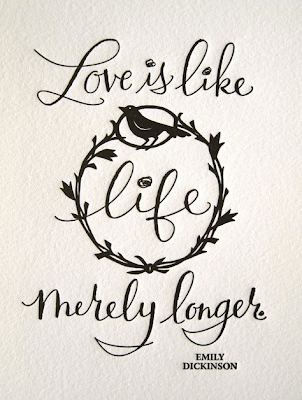 Love is like
life
merely longer.
EMILY
DICKINSON